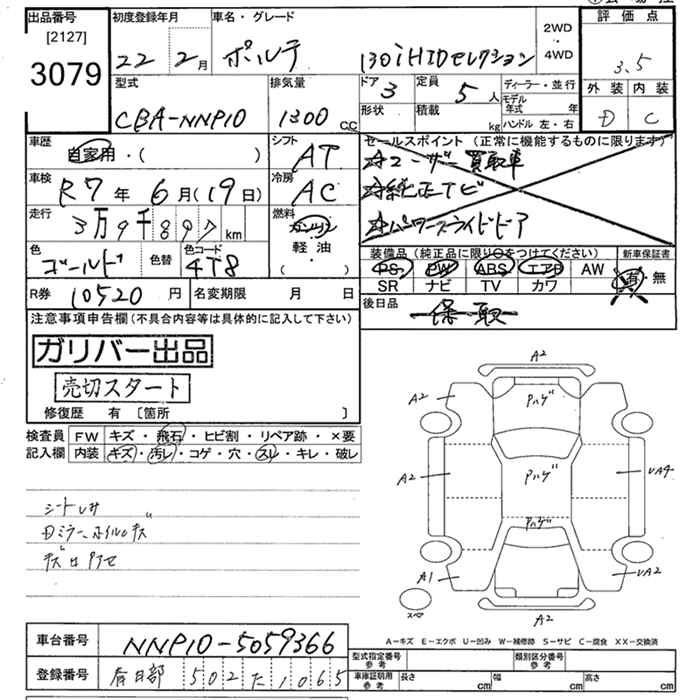 出品番号
[2127]
3079
初度登録年月
22年 2月
車名・グレード
ポルテ 130iHIDセレクション
2WD
・
4WD
評価点
3.5
外装 内装
D C
型式
CBA-NNP10
排気量
1300 CC
ドア 3
定員 5人
形状
積載 kg
ディーラー・並行
モデル年式 年
ハンドル 左・右
車歴
自家用・( )
シフト
AT
車検
R7年 6月(19日)
冷房
AC
走行
3万9千897km
燃料
ガソリン
軽油
( )
色
ゴールド
色替
色コード
4T8
セールスポイント(正常に機能するものに限ります)
☆ユーザー買取車
☆純正TV
☆パワースライドドア
装備品(純正品に限り○をつけてください)
新車保証書
PS PW ABS エアB AW
SR ナビ TV カワ
有・無
R券 10520円
名変期限 月 日
後日品
保 取
注意事項申告欄(不具合内容等は具体的に記入して下さい)
ガリバー出品
売切スタート
修復歴 有 [箇所 ]
検査員 FW キズ・飛石・ヒビ割・リペア跡・×要
記入欄 内装 キズ・汚レ・コゲ・穴・スレ・キレ・破レ
A2
A2
Pハゲ
A2
A2
Pハゲ
UA4
Pハゲ
A1
UA2
スペア
A2
A-キズ E-エクボ U-凹み W-補修跡 S-サビ C-腐食 XX-交換済
車台番号 NNP10-5059366
登録番号 春日部 502た1065
型式指定番号 参考
類別区分番号 参考
車庫証明用 参考
長さ cm
幅 cm
高さ cm